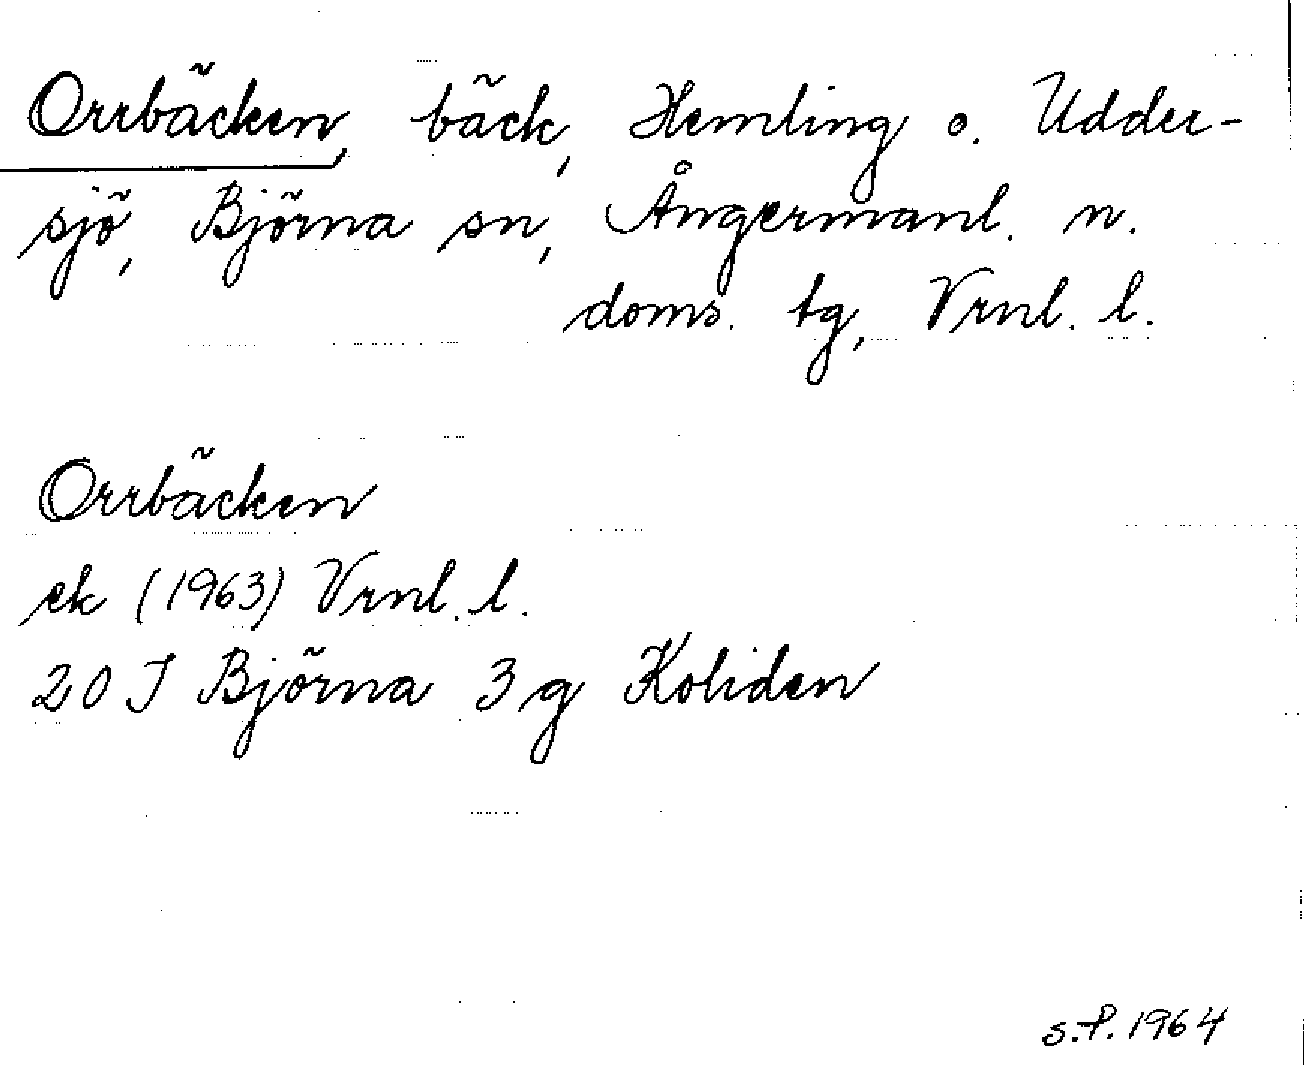 Orrbäcken, bäck, Hemling o. Udder-
sjö, Björna sn, Ångermanl. n.
doms. tg, Vrnl. l.
Orrbäcken
ek (1963) Vrnl. l.
20 J Björna 3 g Koliden
s.f. 1964